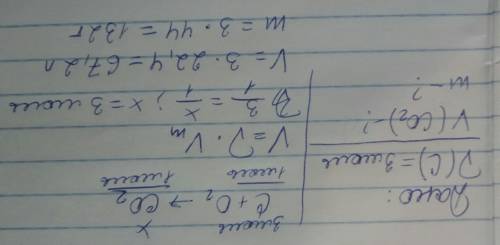 Дано:
ν(C) = 3 моль
V(CO₂) - ?
m - ?
3 моль x
C + O₂ → CO₂
1 моль 1 моль
V = ν · Vm
3/1 = x/1 ; x = 3 моль
V = 3 · 22,4 = 67,2 л
m = 3 · 44 = 132 г